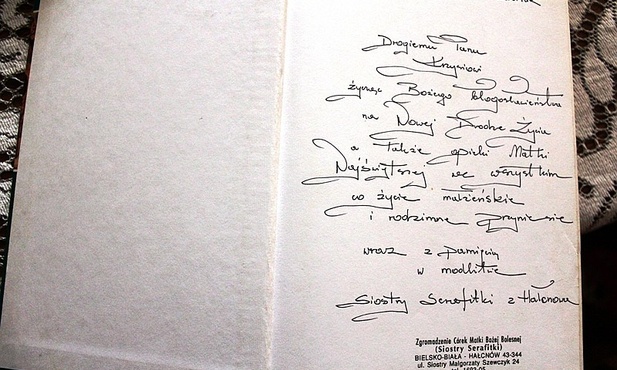 Drogiemu Panu
Krzysiowi
życząc Bożego błogosławieństwa
na Nowej Drodze Życia
a także opieki Matki
Najświętszej we wszystkim
co życie małżeńskie
i rodzinne przyniesie
wraz z pamięcią
w modlitwie
Siostry Serafitki z Hałcnowa
Zgromadzenie Córek Matki Bożej Bolesnej
(Siostry Serafitki)
BIELSKO-BIAŁA - HAŁCNÓW 43-344
ul. Siostry Małgorzaty Szewczyk 24